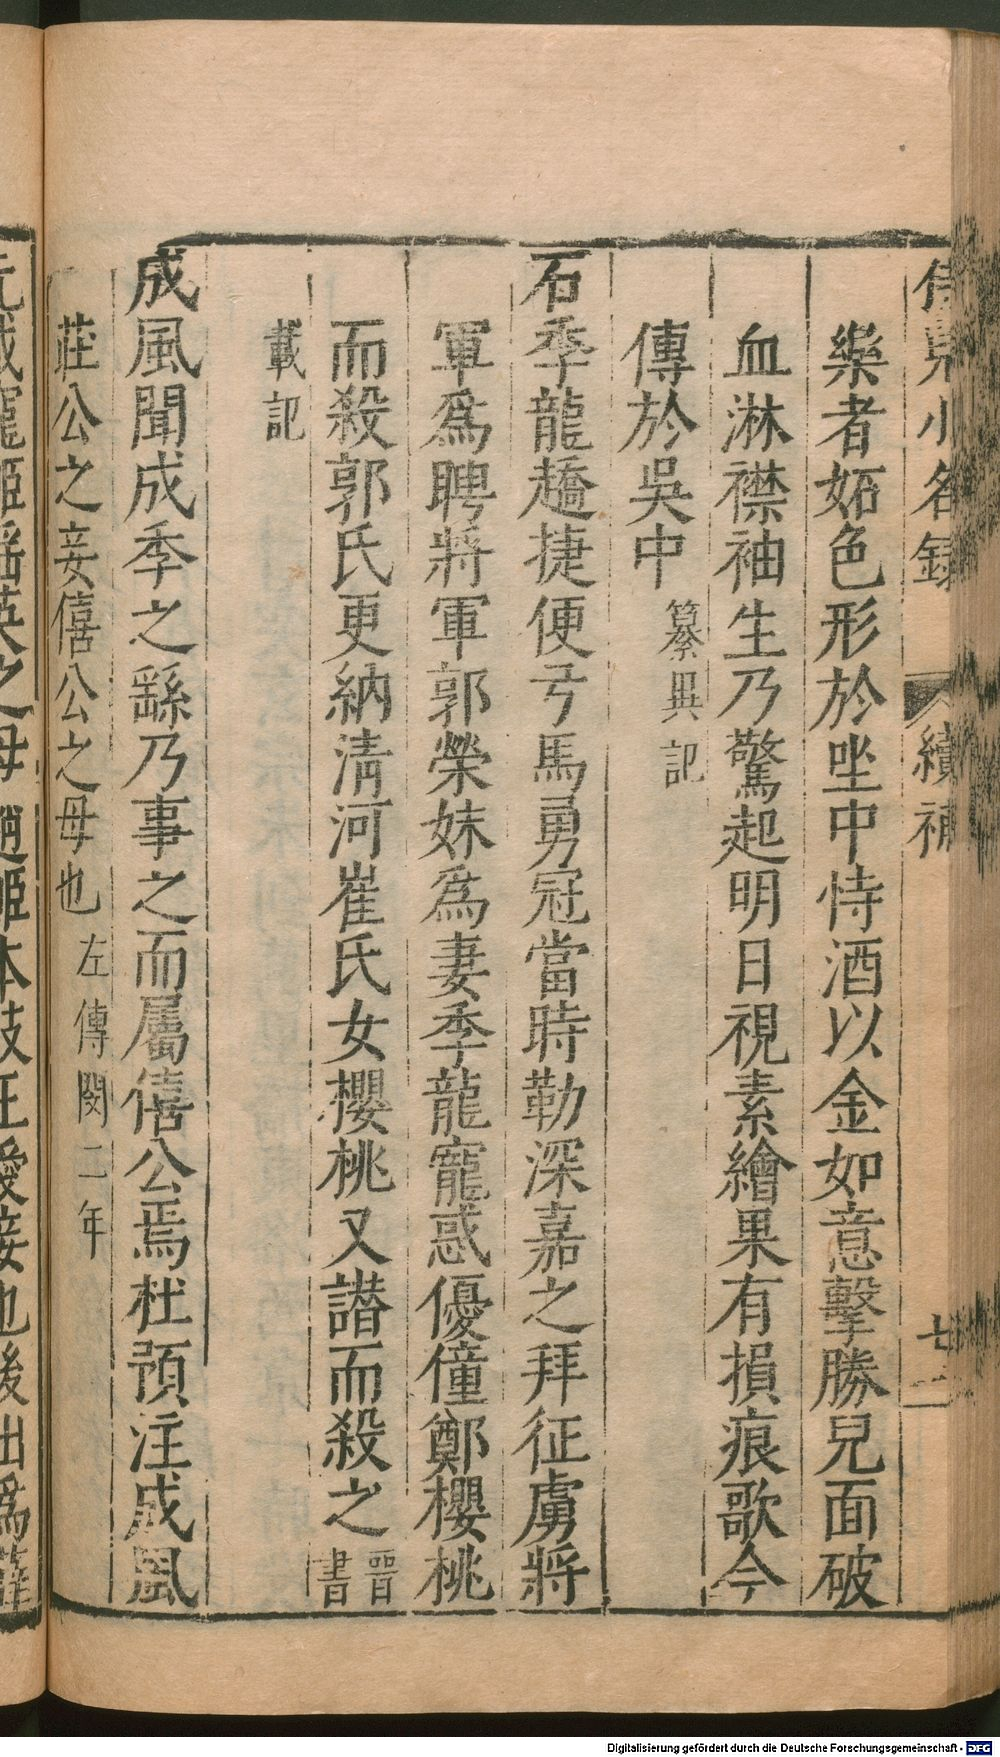 侍兒小名錄 續補 七
樂者妬色形於坐中恃酒以金如意擊勝兒面破
血淋襟袖生乃驚起明日視素繪果有損痕歌今
傳於吳中 纂異記
石季龍趫捷便弓馬勇冠當時勒深嘉之拜征虜將
軍爲聘將軍郭榮妹爲妻季龍寵惑優僮鄭櫻桃
而殺郭氏更納清河崔氏女櫻桃又譖而殺之 晉書
載記
成風聞成季之繇乃事之而屬僖公焉杜預注成風
莊公之妾僖公之母也 左傳閔二年
元載寵姬瑶英之母趙姬本歧王愛妾也後出爲薛
Digitalisierung gefördert durch die Deutsche Forschungsgemeinschaft - DFG